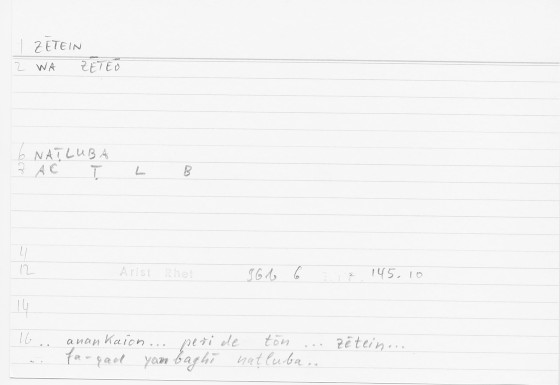 1 ZĒTEIN
2 WA ZĒTEŌ
6 NAṬLUBA
7 AC Ṭ L B
11
12 Arist Rhet 961b 6 145.10
14
16 .. anankaion... peri de tōn ... zētein...
.. fa-qad yanbaghī naṭluba..